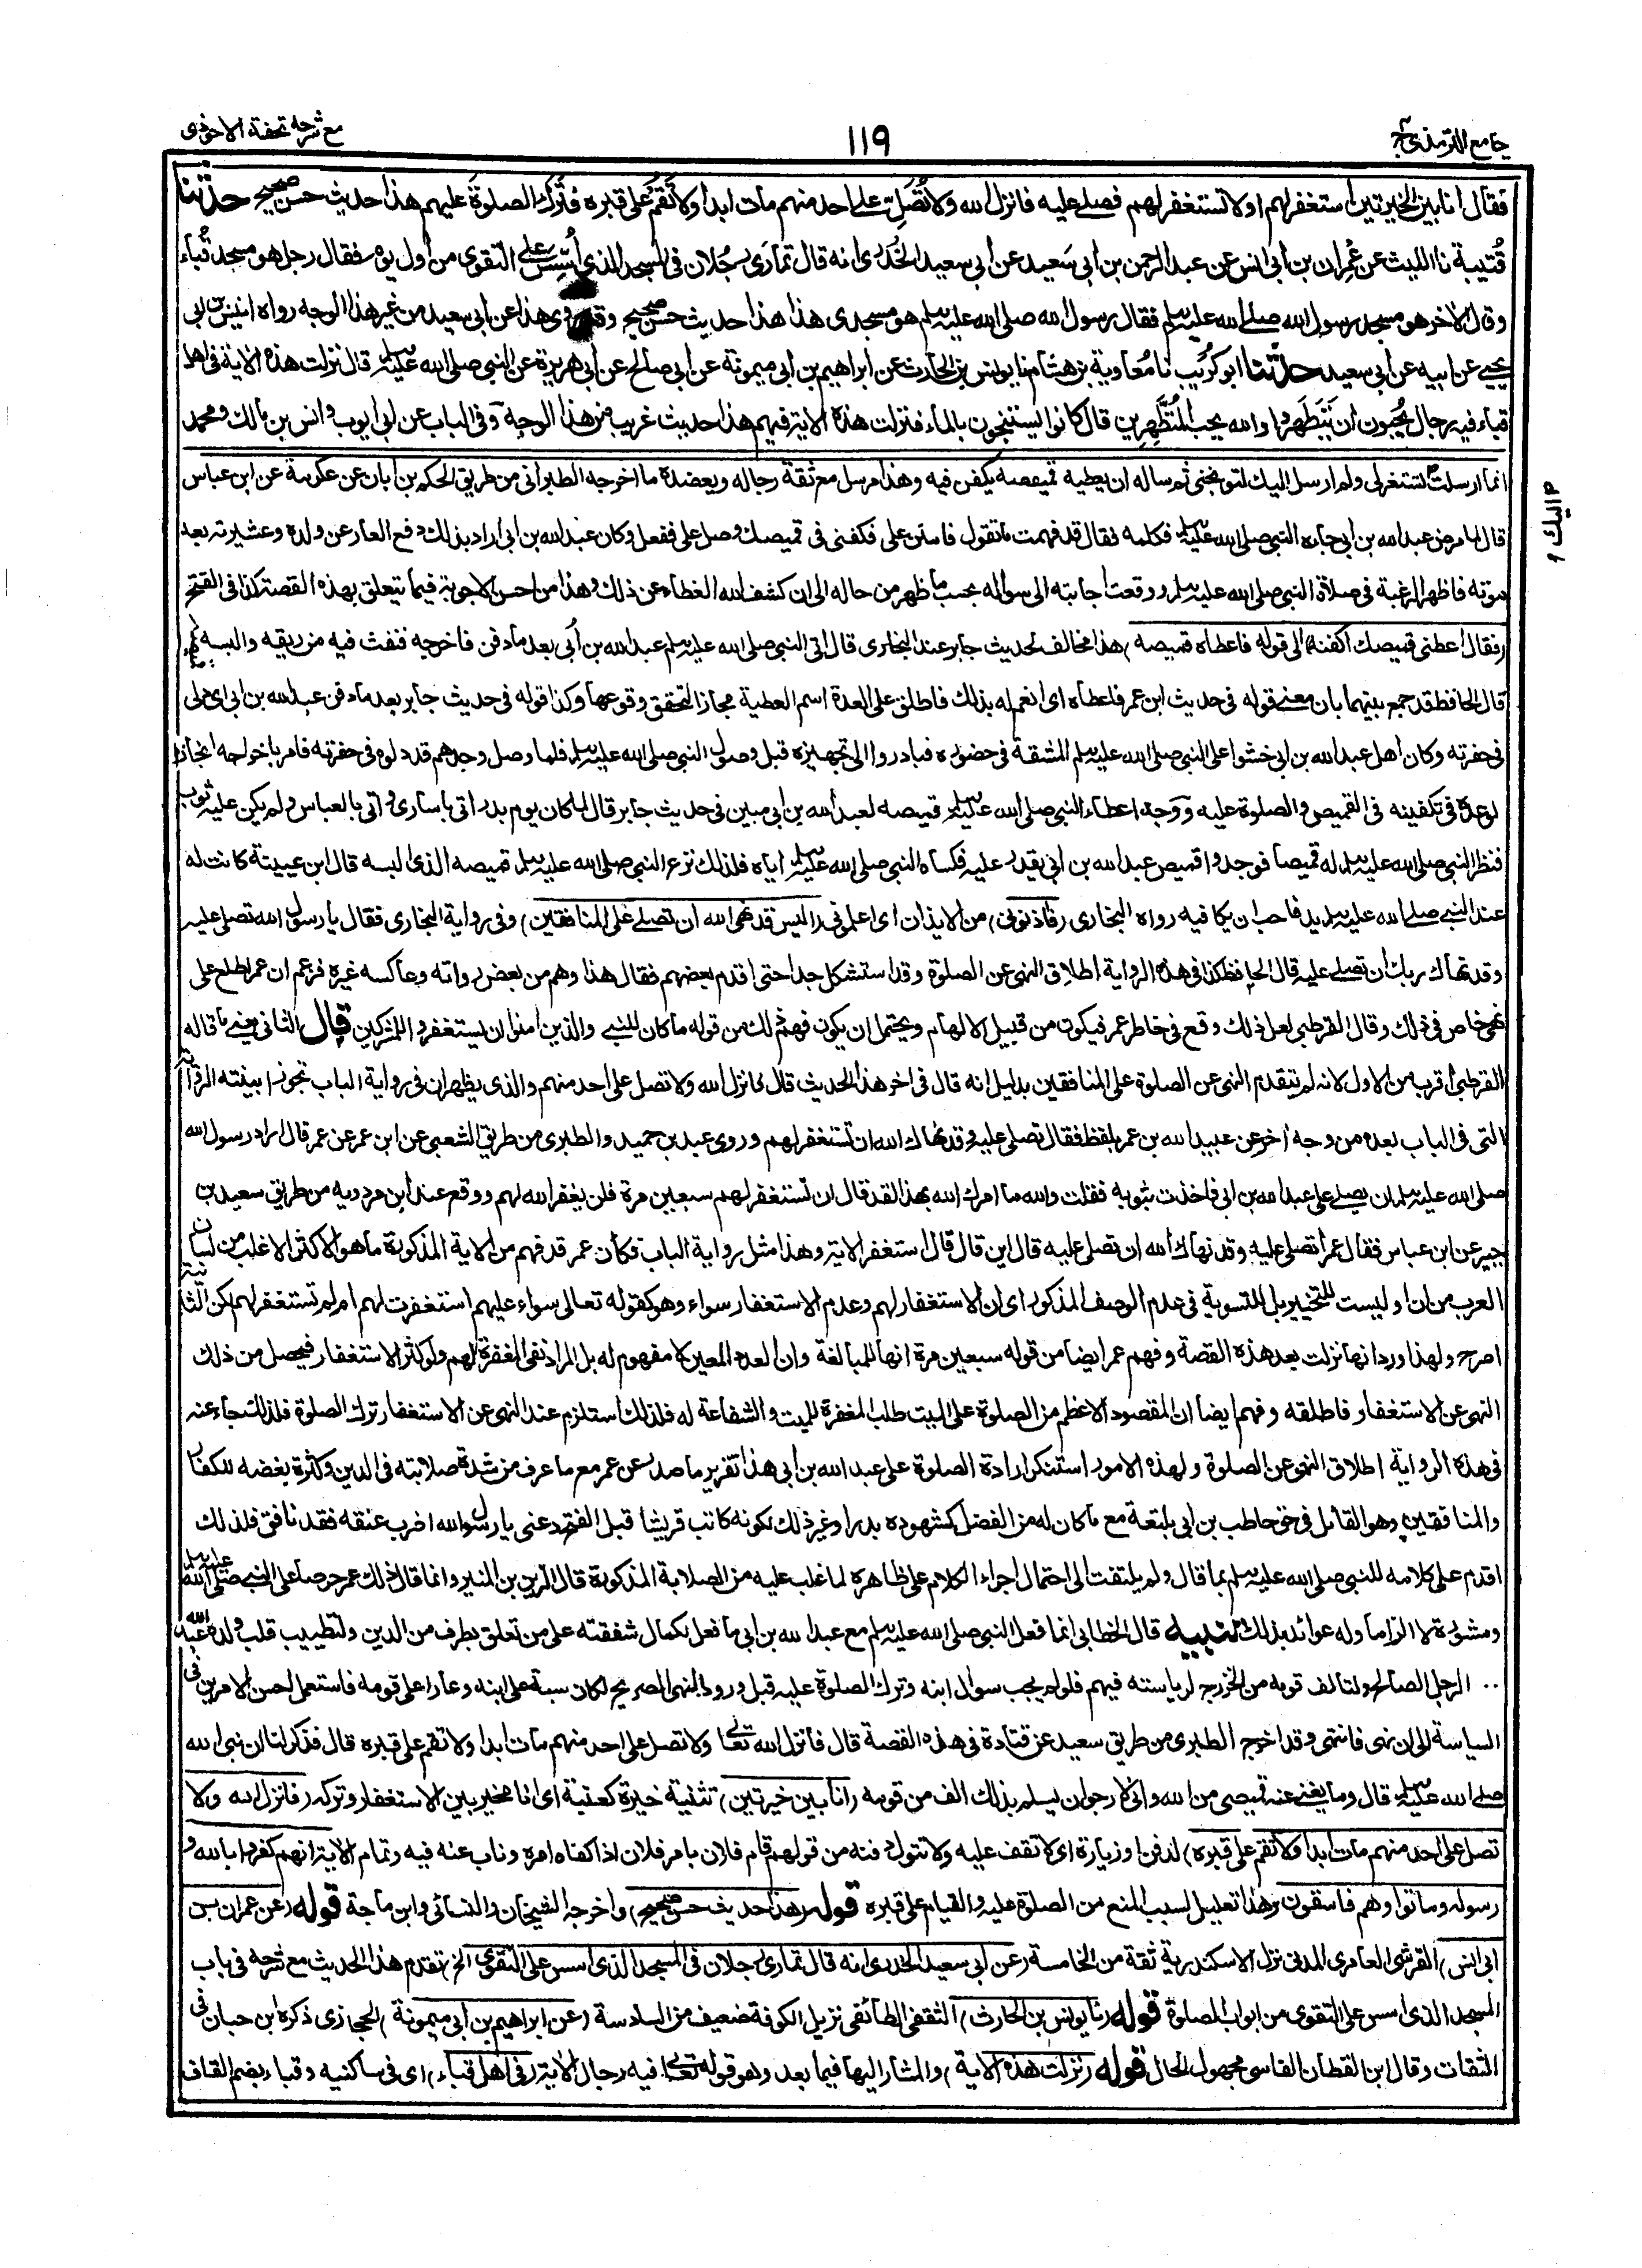 جامع الترمذي ج
119
مع شرحه تحفة الاحوذى
فقال انا بين الخيرتين استغفر لهم او لا تستغفر لهم فصلى عليه فانزل الله ولا تُصَلِّ على احد منهم مات ابدا ولا تَقُمْ على قبره فتَرك الصلوة عليهم هذا حديث حسن صحيح حدثنا
قُتيبة نا الليث عن عِمران بن ابى انس عن عبد الرحمن بن ابى سَعيد عن ابى سعيد الخُدْرى انه قال تمارَى رجُلان فى المسجد الذى أُسِّسَ على التقوى من اول يوم فقال رجل هو مسجد قُباء
وقال الاخر هو مسجد رسول الله صلى الله عليه وسلم فقال رسول الله صلى الله عليه وسلم هو مسجدى هذا هذا حديث حسن صحيح وقد روى هذا عن ابى سعيد من غير هذا الوجه رواه انيس بن ابى
يحيى عن ابيه عن ابى سعيد حدثنا ابو كُرَيب نا مُعاوية بن هشام نا يونس بن الحارث عن ابراهيم بن ابى ميمونة عن ابى صالح عن ابى هريرة عن النبى صلى الله عليه وسلم قال نزلت هذه الاية فى اهل
قباء فيه رجال يُحبون ان يتطَهروا والله يحب المُطَّهِّرين قال كانوا يستنجون بالماء فنزلت هذه الاية فيهم هذا حديث غريب من هذا الوجه وفى الباب عن ابى ايوب وانس بن مالك ومحمد
انما ارسلت لتستغفر لى ولم ارسل اليك لتوبخنى ثم ساله ان يعطيه قميصه يكفن فيه وهذا مرسل مع ثقة رجاله ويعضده ما اخرجه الطبرانى من طريق الحكم بن ابان عن عكرمة عن ابن عباس
قال لما مرض عبد الله بن ابى جاءه النبى صلى الله عليه وسلم فكلمه فقال قد فهمت ما تقول فامنن على فكفنى فى قميصك وصل على ففعل وكان عبد الله بن ابى اراد بذلك دفع العار عن ولده وعشيرته بعد
موته فاظهر الرغبة فى صلاة النبى صلى الله عليه وسلم ووقعت اجابته الى سواله بحسب ما ظهر من حاله الى ان كشف الله الغطاء عن ذلك وهذا من احسن الاجوبة فيما يتعلق بهذه القصة كذا فى الفتح
(فقال اعطنى قميصك اكفنه الى قوله فاعطاه قميصه) هذا مخالف لحديث جابر عند البخارى قال اتى النبى صلى الله عليه وسلم عبد الله بن أبى بعد ما دفن فاخرجه فنفث فيه من ريقه والبسه قميصه
قال الحافظ قد جمع بينهما بان معنى قوله فى حديث ابن عمر فاعطاه اى انعم له بذلك فاطلق على العدة اسم العطية مجازا لتحقق وقوعها وكذا قوله فى حديث جابر بعد ما دفن عبد الله بن ابى اى دلى
فى حفرته وكان اهل عبد الله بن ابى خشوا على النبى صلى الله عليه وسلم المشقة فى حضوره فبادروا الى تجهيزه قبل وصول النبى صلى الله عليه وسلم فلما وصل وجدهم قد دلوه فى حفرته فامر باخراجه انجازا
لوعده فى تكفينه فى القميص والصلوة عليه ووجه اعطاء النبى صلى الله عليه وسلم قميصه لعبد الله بن ابى مبين فى حديث جابر قال لما كان يوم بدر اتى باسارى واتى بالعباس ولم يكن عليه ثوب
فنظر النبى صلى الله عليه وسلم له قميصا فوجدوا قميص عبد الله بن ابى يقدر عليه فكساه النبى صلى الله عليه وسلم اياه فلذلك نزع النبى صلى الله عليه وسلم قميصه الذى البسه قال ابن عيينة كانت له
عند النبى صلى الله عليه وسلم يد فاحب ان يكافيه رواه البخارى (فآذنونى) من الايذان اى اعلمونى (اليس قد نهى الله ان تصلى على المنافقين) وفى رواية البخارى فقال يا رسول الله تصلى عليه
وقد نهاك ربك ان تصلى عليه قال الحافظ كذا فى هذه الرواية اطلاق النهى عن الصلوة وقد استشكل جدا حتى اقدم بعضهم فقال هذا وهم من بعض رواته وعاكسه غيره فزعم ان عمر اطلع على
نهى خاص فى ذلك وقال القرطبى لعل ذلك وقع فى خاطر عمر فيكون من قبيل الالهام ويحتمل ان يكون فهم ذلك من قوله ما كان للنبى والذين امنوا ان يستغفروا للمشركين قال الثانى يعنى ما قاله
القرطبى اقرب من الاول لانه لم يتقدم النهى عن الصلوة على المنافقين بدليل انه قال فى اخر هذا الحديث قال فانزل الله ولا تصل على احد منهم والذى يظهر ان فى رواية الباب تجوزا بينته الرواية
التى فى الباب بعده من وجه اخر عن عبيد الله بن عمر بلفظ فقال تصلى عليه وقد نهاك الله ان تستغفر لهم وروى عبد بن حميد والطبرى من طريق الشعبى عن ابن عمر عن عمر قال اراد رسول الله
صلى الله عليه وسلم ان يصلى على عبد الله بن ابى فاخذت بثوبه فقلت والله ما امرك الله بهذا لقد قال ان تستغفر لهم سبعين مرة فلن يغفر الله لهم ووقع عند ابن مردويه من طريق سعيد بن
جبير عن ابن عباس فقال عمر اتصلى عليه وقد نهاك الله ان تصلى عليه قال اين قال قال استغفر الاية وهذا مثل رواية الباب فكان عمر قد فهم من الاية المذكورة ما هو الاكثر الاغلب من لسان
العرب من ان او ليست للتخيير بل للتسوية فى عدم الوصف المذكور اى ان الاستغفار لهم وعدم الاستغفار سواء وهو كقوله تعالى سواء عليهم استغفرت لهم ام لم تستغفر لهم لكن الثانية
اصرح ولهذا ورد انها نزلت بعد هذه القصة وفهم عمر ايضا من قوله سبعين مرة انها للمبالغة وان العدد المعين لا مفهوم له بل المراد نفى المغفرة لهم ولو كثر الاستغفار فيحصل من ذلك
النهى عن الاستغفار فاطلقه وفهم ايضا ان المقصود الاعظم من الصلوة على الميت طلب المغفرة للميت والشفاعة له فلذلك استلزم عنده النهى عن الاستغفار ترك الصلوة فلذلك جاء عنه
فى هذه الرواية اطلاق النهى عن الصلوة ولهذه الامور استنكر ارادة الصلوة على عبد الله بن ابى هذا تقرير ما صدر عن عمر مع ما عرف من شدة صلابته فى الدين وكثرة بغضه للكفار
والمنافقين وهو القائل فى حق حاطب بن ابى بلتعة مع ما كان له من الفضل كشهوده بدرا وغير ذلك لكونه كاتب قريشا قبل الفتح دعنى يا رسول الله اضرب عنقه فقد نافق فلذلك
اقدم على كلامه للنبى صلى الله عليه وسلم بما قال ولم يلتفت الى احتمال اجراء الكلام على ظاهره لما غلب عليه من الصلابة المذكورة قال الزين بن المنير وانما قال ذلك عمر حرصا على النبى صلى الله عليه وسلم
ومشورة لا الزاما وله عوائد بذلك تنبيه قال الخطابى انما فعل النبى صلى الله عليه وسلم مع عبد الله بن ابى ما فعل لكمال شفقته على من تعلق بطرف من الدين ولتطييب قلب ولده عبد الله
الرجل الصالح ولتالف قومه من الخزرج لرياسته فيهم فلو لم يجب سوال ابنه وترك الصلوة عليه قبل ورود النهى الصريح لكان سبة على ابنه وعارا على قومه فاستعمل احسن الامرين فى
السياسة الى ان نهى فانتهى وقد اخرج الطبرى من طريق سعيد عن قتادة فى هذه القصة قال فانزل الله تعالى ولا تصل على احد منهم مات ابدا ولا تقم على قبره قال فذكر لنا ان نبى الله
صلى الله عليه وسلم قال وما يغنى عنه قميصى من الله وانى لارجو ان يسلم بذلك الف من قومه (انا بين خيرتين) تثنية خيرة كعنبة اى انا مخير بين الاستغفار وتركه (فانزل الله ولا
تصل على احد منهم مات ابدا ولا تقم على قبره) لدفن او زيارة اى لا تقف عليه ولا تتول دفنه من قولهم قام فلان بامر فلان اذا كفاه امره وناب عنه فيه وتمام الاية انهم كفروا بالله و
رسوله وماتوا وهم فاسقون وهذا تعليل لسبب المنع من الصلوة عليه والقيام على قبره قوله (هذا حديث حسن صحيح) واخرجه الشيخان والنسائى وابن ماجة قوله (عن عمران بن
ابى انس) القرشى العامرى المدنى نزل الاسكندرية ثقة من الخامسة (عن ابى سعيد الخدرى انه قال تمارى رجلان فى المسجد الذى اسس على التقوى الخ) تقدم هذا الحديث مع شرحه فى باب
المسجد الذى اسس على التقوى من ابواب الصلوة قوله (نا يونس بن الحارث) الثقفى الطائفى نزيل الكوفة ضعيف من السادسة (عن ابراهيم بن ابى ميمونة) الحجازى ذكره ابن حبان فى
الثقات وقال ابن القطان الفاسى مجهول الحال قوله (نزلت هذه الاية) والمشار اليها فيما بعد وهو قوله تعالى فيه رجال الاية (فى اهل قباء) اى فى ساكنيه وقباء بضم القاف
اليك